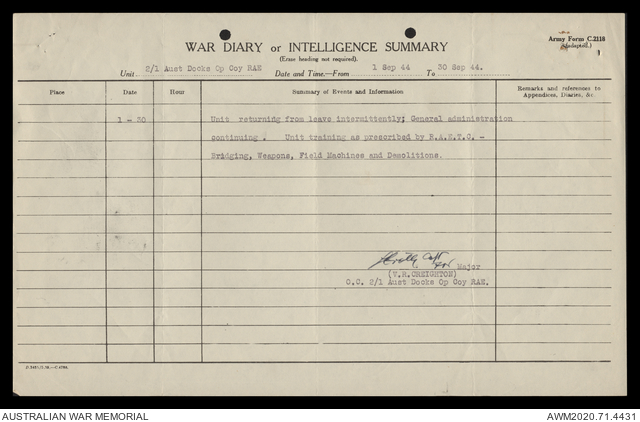 Army Form C.2118
(Adapted.)
1
WAR DIARY or INTELLIGENCE SUMMARY
(Erase heading not required).
Unit 2/1 Aust Docks Op Coy RAE Date and Time.—From 1 Sep 44 To 30 Sep 44.
Place Date Hour Summary of Events and Information Remarks and references to
Appendices, Diaries, &c.
1 - 30 Unit returning from leave intermittently; General administration
continuing . Unit training as prescribed by R.A.E.T.C. -
Bridging, Weapons, Field Machines and Demolitions.
Capt
for Major
(V.R.CREIGHTON)
O.C. 2/1 Aust Docks Op Coy RAE.
AUSTRALIAN WAR MEMORIAL AWM2020.71.4431